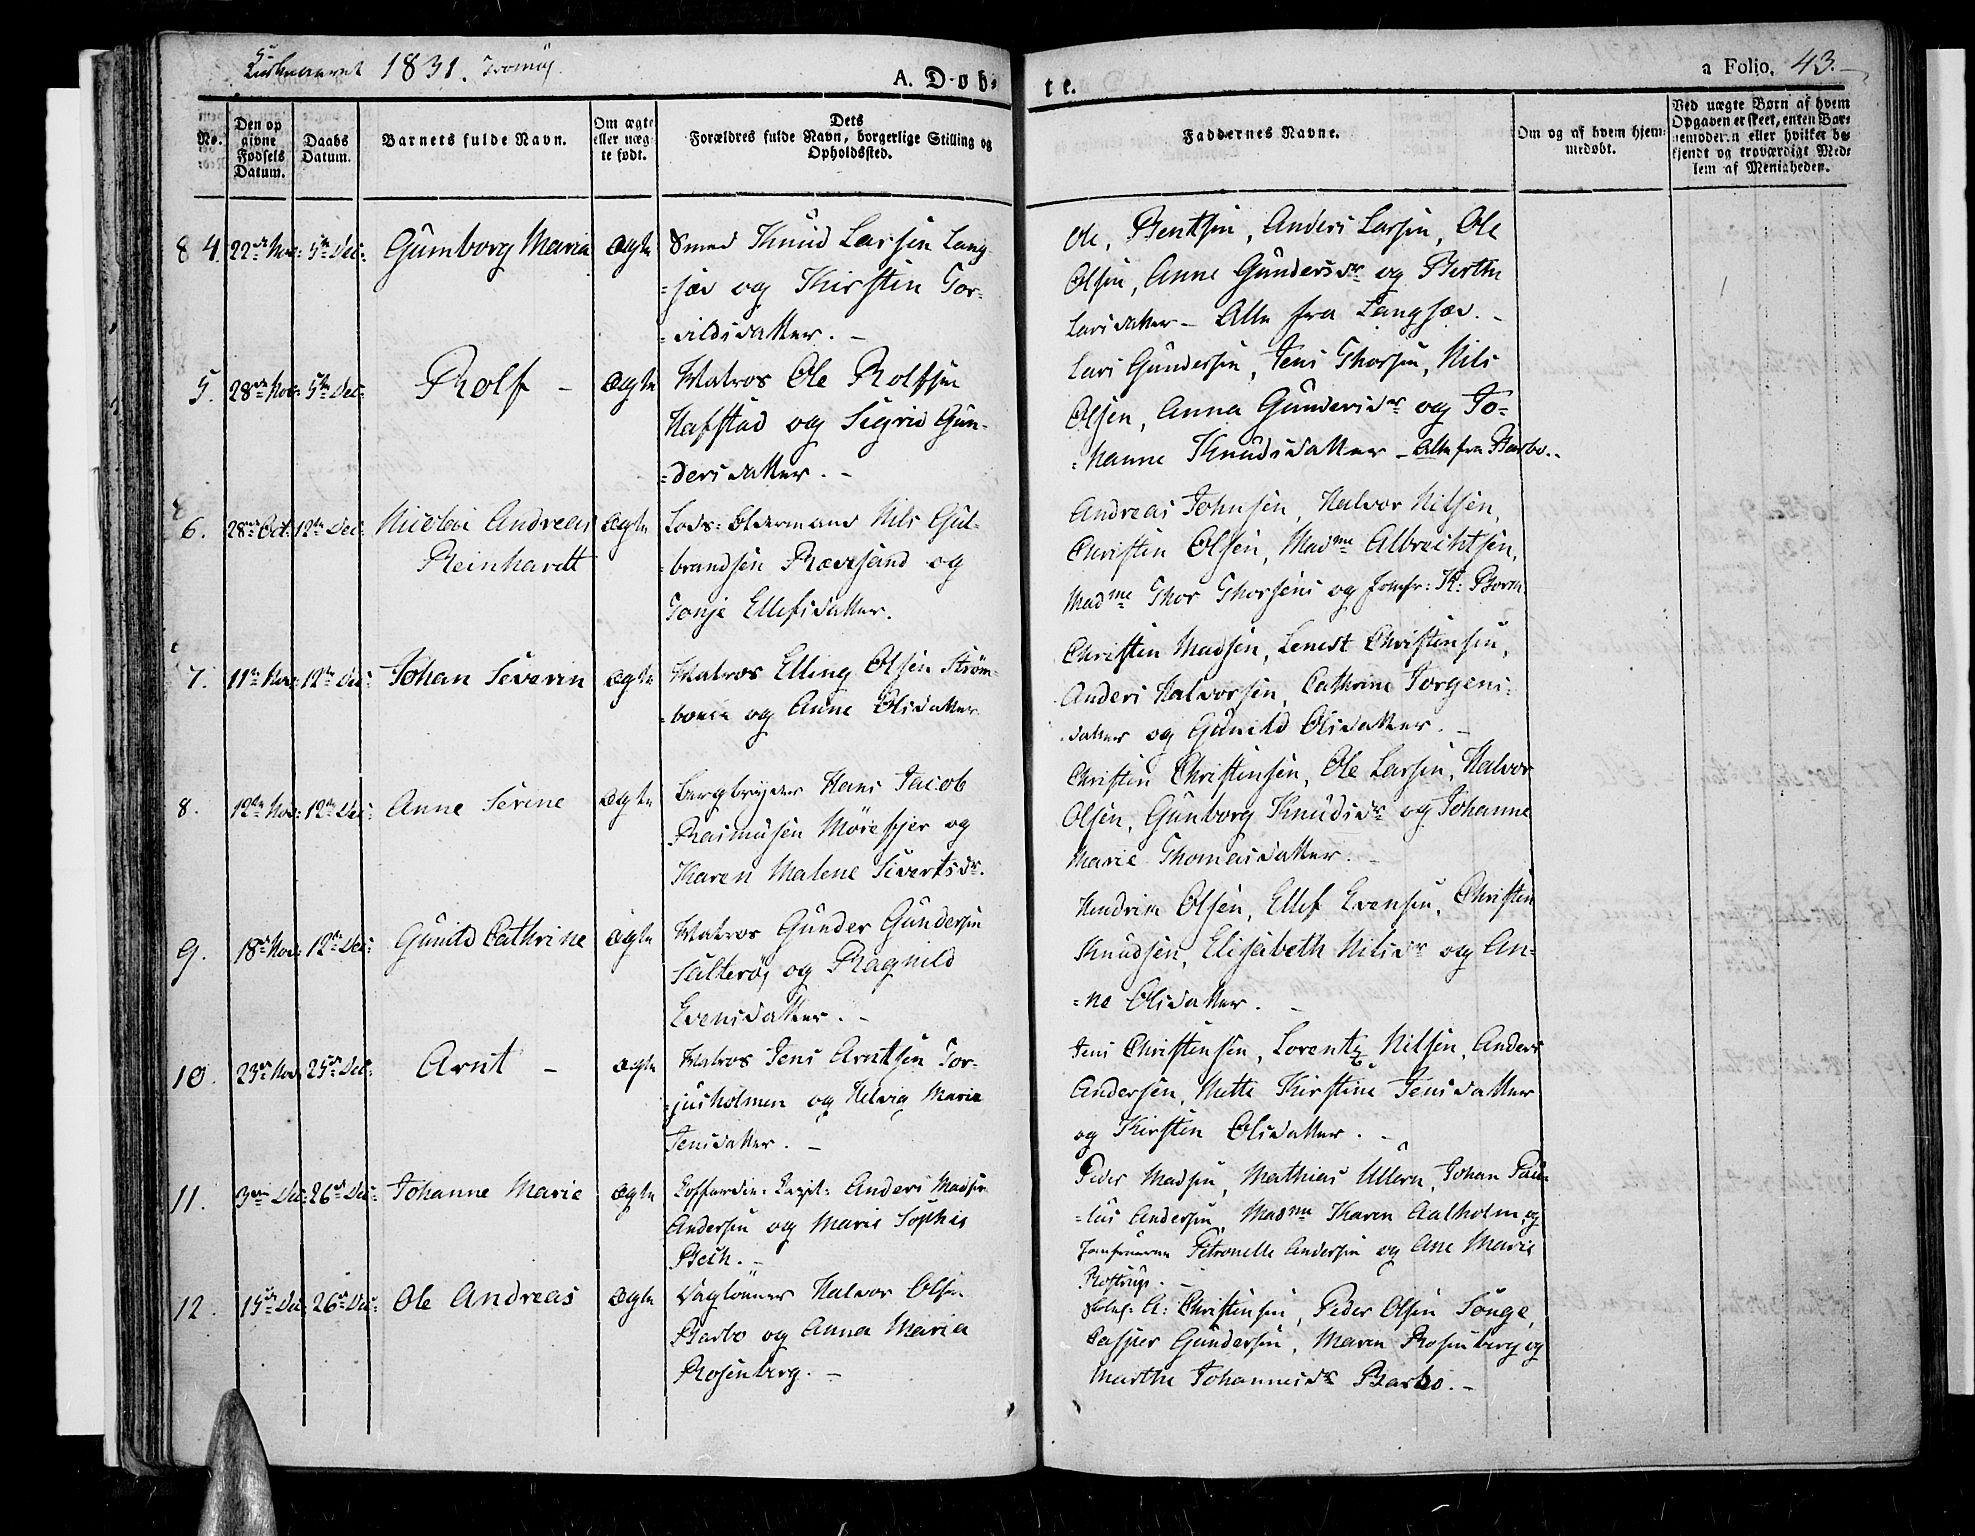 Kirkeaaret 1831. Tromøj.
A. Døbte.
a Folio. 43.
No.
Den opgivne Fødsels Datum.
Daabs Datum.
Barnets fulde Navn.
Om ægte eller uægte født.
Dets Forældres fulde Navn, borgerlige Stilling og Opholdssted.
Faddernes Navne.
Om og af hvem hjemmedøbt.
Ved uægte Børn af hvem Opgaven er skeet, enten Barnemoderen eller hvilket bekjendt og troværdigt Medlem af Menigheden.
84. 22de Nov: 5te Dec: Gumborg Maria ægte
Smed Knud Larsen Lang-
=sæv og Kirstin Tor-
=vildsdatter. –
Ole Bentsen, Anders Larsen, Ole
Olsen, Anne Gundersdr og Berthe
Larsdatter – Alle fra Langsæv. –
5. 28de Nov: 5te Dec: Rolf – ægte
Matros Ole Rolfsen
Hafstad og Sigrid Gun-
=dersdatter. –
Lars Gundersen, Jens Thorsen, Nils
Olsen, Anna Gundersdr og Jo-
=hanne Knudsdatter – Alle fra Barbo. –
6. 28de Oct: 12te Dec: Nicolai Andreas
Reinhardt
ægte
Lods-Oldermand Nils Gul-
=brandsen Rævesand og
Tonje Ellefsdatter.
Andreas Johnsen, Halvor Nilsen,
Christen Olsen, Madme Albrechtsen,
Madme Thor Thorsens og Jomfr: K: Born
7. 11te Nov: 12te Dec: Johan Severin ægte
Matros Elling Olsen Strøm-
=boen og Anne Olsdatter
Christen Madsen, Christensen,
Anders Halvorsen, Cathrine Jørgens-
datter og Gunild Olsdatter. –
8. 12te Nov: 12te Dec: Anne Serine ægte
Bergbryder Hans Jacob
Rasmusen Mørefjer og
Karen Malene Sivertsdr.
Christen Christensen, Ole Larsen, Halvor
Olsen, Gunborg Knudsdr og Johanne
Marie Thomasdatter. –
9. 18de Nov: 12te Dec: Gunild Cathrine ægte
Matros Gunder Gundersen
Salterøj og Ragnild
Evensdatter. –
Hendrik Olsen, Ellef Evensen, Christen
Knudsen, Elisabeth Nilsdr og An-
=ne Olsdatter. –
10. 23de Nov: 25de Dec: Arnt – ægte
Matros Jens Arntsen Tor-
=jusholmen og Helvig Marie
Jensdatter. –
Jens Christensen, Lorentz Nilsen, Anders
Andersen, Mette Kirstine Jensdatter
og Kirsten Olsdatter. –
11. 3die Dec: 26de Dec: Johanne Marie ægte
Koffardie-Capit: Anders Madsen
Andersen og Maris Sophie
Beth. –
Peder Madsen, Mathias Ullern, Johan Pau-
=lus Andersen, Madme Karen Aalholm, og
Jomfruerne Petronelle Andersen og Ane Marie
Rostrup. –
12. 15de Dec: 26de Dec: Ole Andreas ægte
Daglønner Halvor Olsen
Barbo og Anna Maria
Rosenberg. –
A: Christensen, Peder Olsen Songe,
Casper Gundersen, Maren Rosenberg og
Marthe Johannesdr Barbo. –